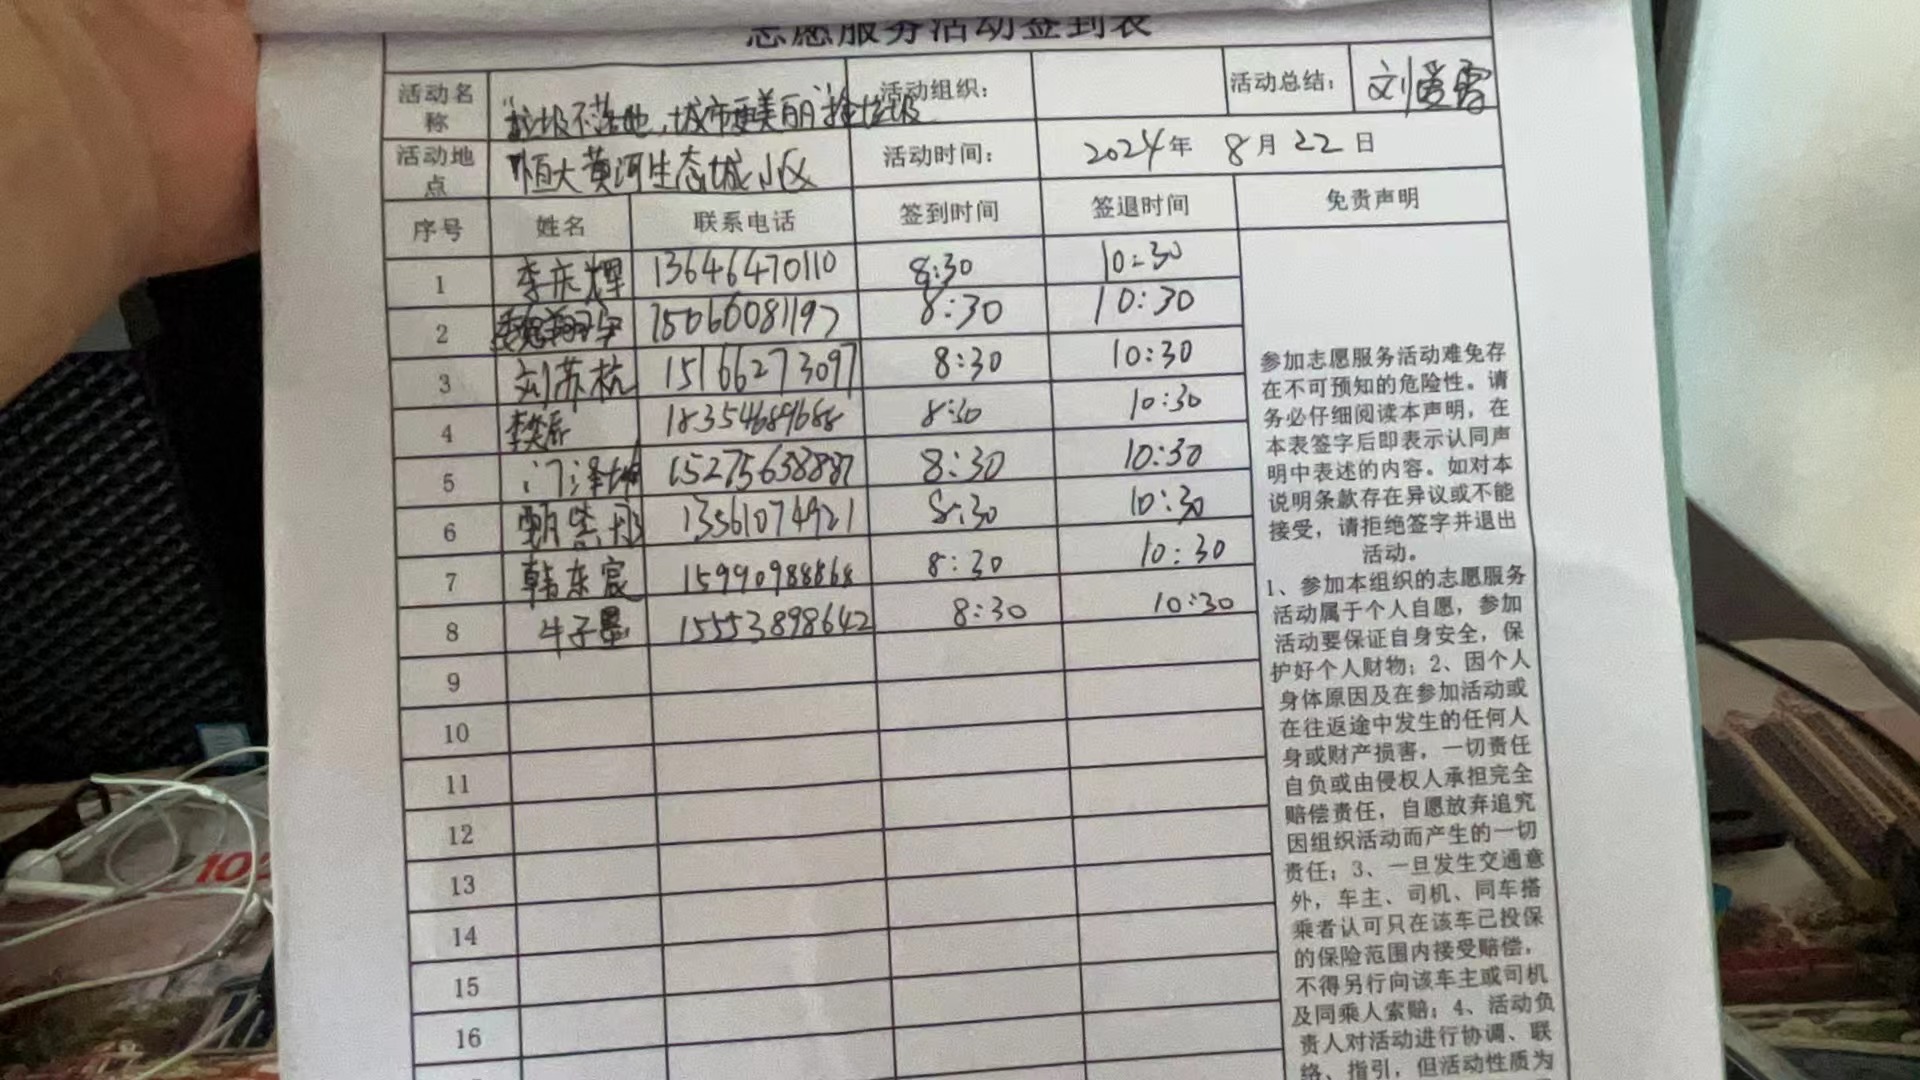 志愿服务活动签到表
活动名称 "垃圾不落地,城市更美丽"捡垃圾 活动组织: 活动总结: 刘爱雪
活动地点 恒大黄河生态城小区 活动时间: 2024年 8月22日
序号 姓名 联系电话 签到时间 签退时间 免责声明
1 李庆辉 13646470110 8:30 10:30
2 15066081197 8:30 10:30
3 刘苏杭 15166273097 8:30 10:30
4 18354689688 8:30 10:30
5 门泽坤 15275638887 8:30 10:30
6 13561074921 8:30 10:30
7 韩东宸 15990988868 8:30 10:30
8 牛子墨 15553898642 8:30 10:30
9
10
11
12
13
14
15
16
参加志愿服务活动难免存
在不可预知的危险性。请
务必仔细阅读本声明,在
本表签字后即表示认同声
明中表述的内容。如对本
说明条款存在异议或不能
接受,请拒绝签字并退出
活动。
1、参加本组织的志愿服务
活动属于个人自愿,参加
活动要保证自身安全,保
护好个人财物;2、因个人
身体原因及在参加活动或
在往返途中发生的任何人
身或财产损害,一切责任
自负或由侵权人承担完全
赔偿责任,自愿放弃追究
因组织活动而产生的一切
责任;3、一旦发生交通意
外,车主、司机、同车搭
乘者认可只在该车已投保
的保险范围内接受赔偿,
不得另行向该车主或司机
及同乘人索赔;4、活动负
责人对活动进行协调、联
络、指引,但活动性质为